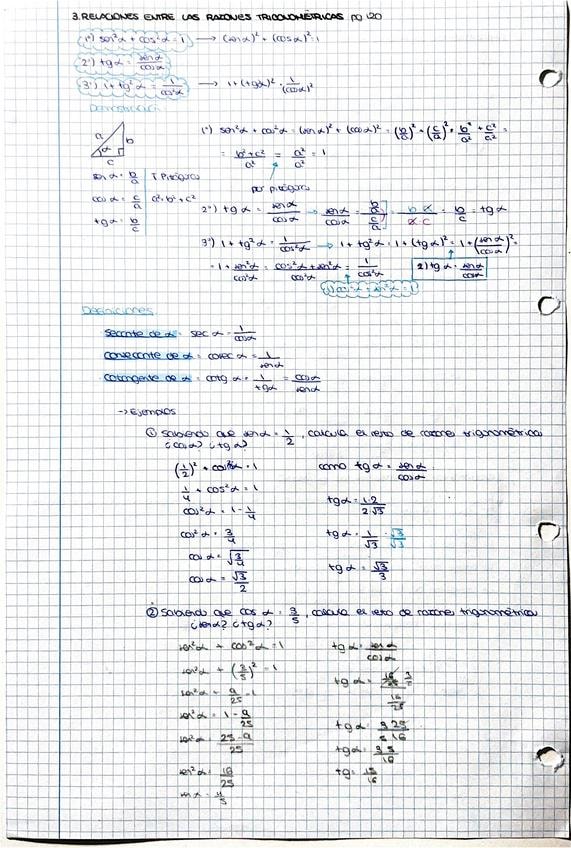 3. RELACIONES ENTRE LAS RAZONES TRIGONOMÉTRICAS pg 120
1º) sen²α + cos²α = 1 → (senα)² + (cosα)² = 1
2º) tgα = senα/cosα
3º) 1 + tg²α = 1/cos²α → 1 + (tgα)² = 1/(cosα)²
Demostración
a b c α
senα = b/a
cosα = c/a
tgα = b/c
T Pitágoras
a² = b² + c²
1º) sen²α + cos²α = (senα)² + (cosα)² = (b/a)² + (c/a)² = b²/a² + c²/a² =
= b²+c²/a² = a²/a² = 1
por pitágoras
2º) tgα = senα/cosα → senα/cosα = b/a / c/a = b·a/a·c = b/c = tgα
3º) 1 + tg²α = 1/cos²α → 1 + tg²α = 1 + (tgα)² = 1 + (senα/cosα)² =
= 1 + sen²α/cos²α = cos²α + sen²α/cos²α = 1/cos²α
2) tgα = senα/cosα
1) cos²α + sen²α = 1
Definiciones
secante de α = sec α = 1/cosα
cosecante de α = cosec α = 1/senα
cotangente de α = cotg α = 1/tgα = cosα/senα
→ Ejemplos
① Sabiendo que senα = 1/2, calcula el resto de razones trigonométricas
¿cosα? ¿tgα?
(1/2)² + cos²α = 1
1/4 + cos²α = 1
cos²α = 1 - 1/4
cos²α = 3/4
cosα = √3/4
cosα = √3/2
como tgα = senα/cosα
tgα = 1·2/2·√3
tgα = 1/√3 · √3/√3
tgα = √3/3
② Sabiendo que cos α = 3/5, calcula el resto de razones trigonométricas
¿senα? ¿tgα?
sen²α + cos²α = 1
sen²α + (3/5)² = 1
sen²α + 9/25 = 1
sen²α = 1 - 9/25
sen²α = 25-9/25
sen²α = 16/25
senα = 4/5
tgα = senα/cosα
tgα = 3/5 / 16/25
tgα = 3·25/5·16
tgα = 3·5/16
tg = 15/16